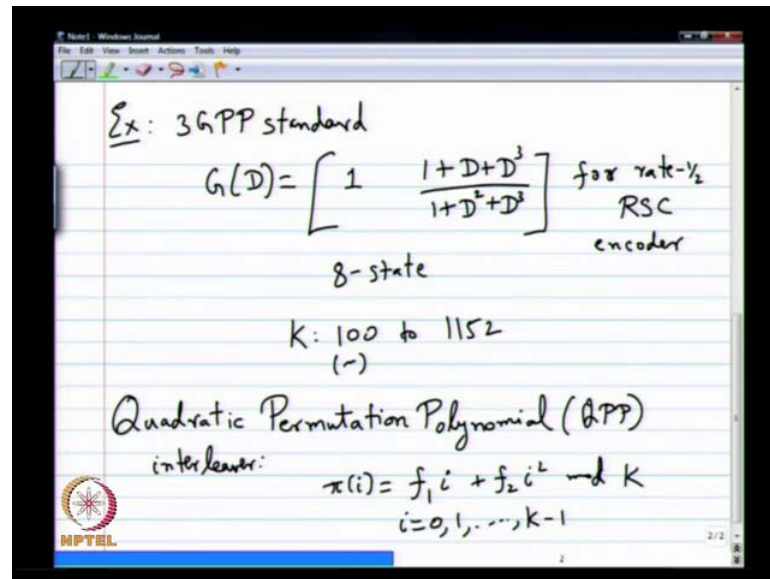 Note1 - Windows Journal
File Edit View Insert Actions Tools Help
Ex: 3GPP standard
G(D) = [ 1 (1+D+D³)/(1+D²+D³) ] for rate-1/2
RSC
encoder
8-state
K: 100 to 1152
(~)
Quadratic Permutation Polynomial (QPP)
interleaver:
π(i) = f₁ i + f₂ i² mod K
i=0, 1, ...., K-1
NPTEL
2/2
2